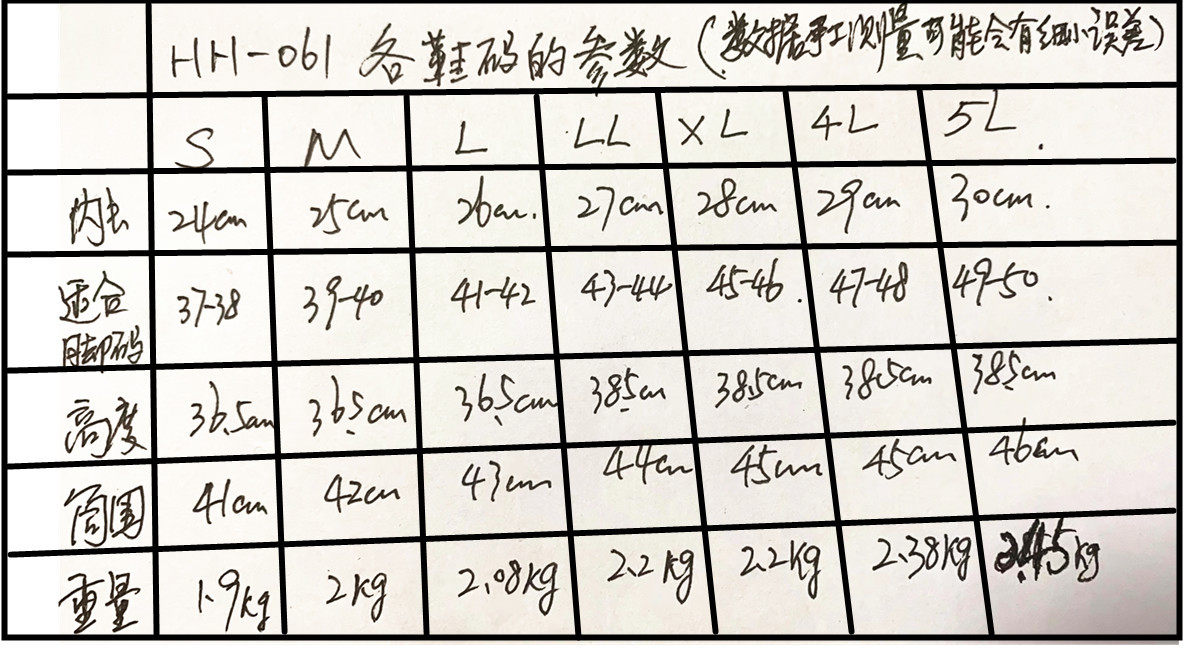 HH-061 各鞋码的参数(数据手工测量可能会有细小误差)
S M L LL XL 4L 5L.
内长 24cm 25cm 26cm. 27cm 28cm 29cm 30cm.
适合 37-38 39-40 41-42 43-44 45-46. 47-48 49-50.
脚码
高度 36.5cm 36.5cm 36.5cm 38.5cm 38.5cm 38.5cm 38.5cm
周围 41cm 42cm 43cm 44cm 45cm 45cm 46cm
重量 1.9kg 2kg 2.08kg 2.2kg 2.2kg 2.38kg